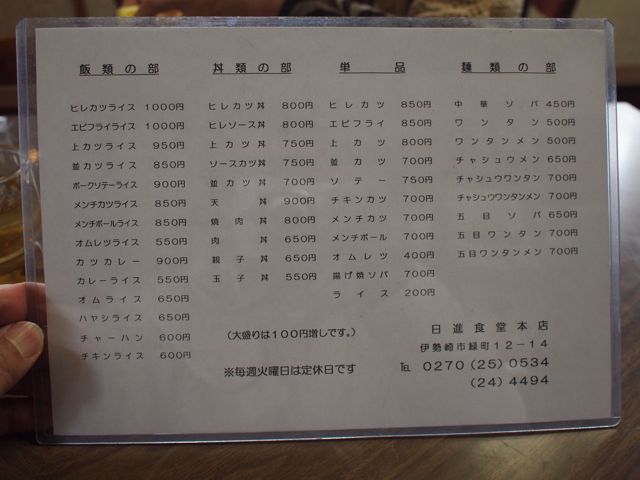 飯類の部
ヒレカツライス 1000円
エビフライライス 1000円
上カツライス 950円
並カツライス 850円
ポークソテーライス 900円
メンチカツライス 850円
メンチボールライス 850円
オムレツライス 550円
カツカレー 900円
カレーライス 550円
オムライス 650円
ハヤシライス 650円
チャーハン 600円
チキンライス 600円
丼類の部
ヒレカツ丼 800円
ヒレソース丼 800円
上カツ丼 750円
ソースカツ丼 750円
並カツ丼 700円
天丼 900円
焼肉丼 800円
肉丼 650円
親子丼 650円
玉子丼 550円
単品
ヒレカツ 850円
エビフライ 850円
上カツ 800円
並カツ 700円
ソテー 750円
チキンカツ 700円
メンチカツ 700円
メンチボール 700円
オムレツ 400円
揚げ焼ソバ 700円
ライス 200円
麺類の部
中華ソバ 450円
ワンタン 500円
ワンタンメン 500円
チャシュウメン 650円
チャシュウワンタン 700円
チャシュウワンタンメン 700円
五目ソバ 650円
五目ワンタン 700円
五目ワンタンメン 700円
(大盛りは100円増しです。)
※毎週火曜日は定休日です
日進食堂本店
伊勢崎市緑町12-14
℡ 0270(25)0534
(24)4494